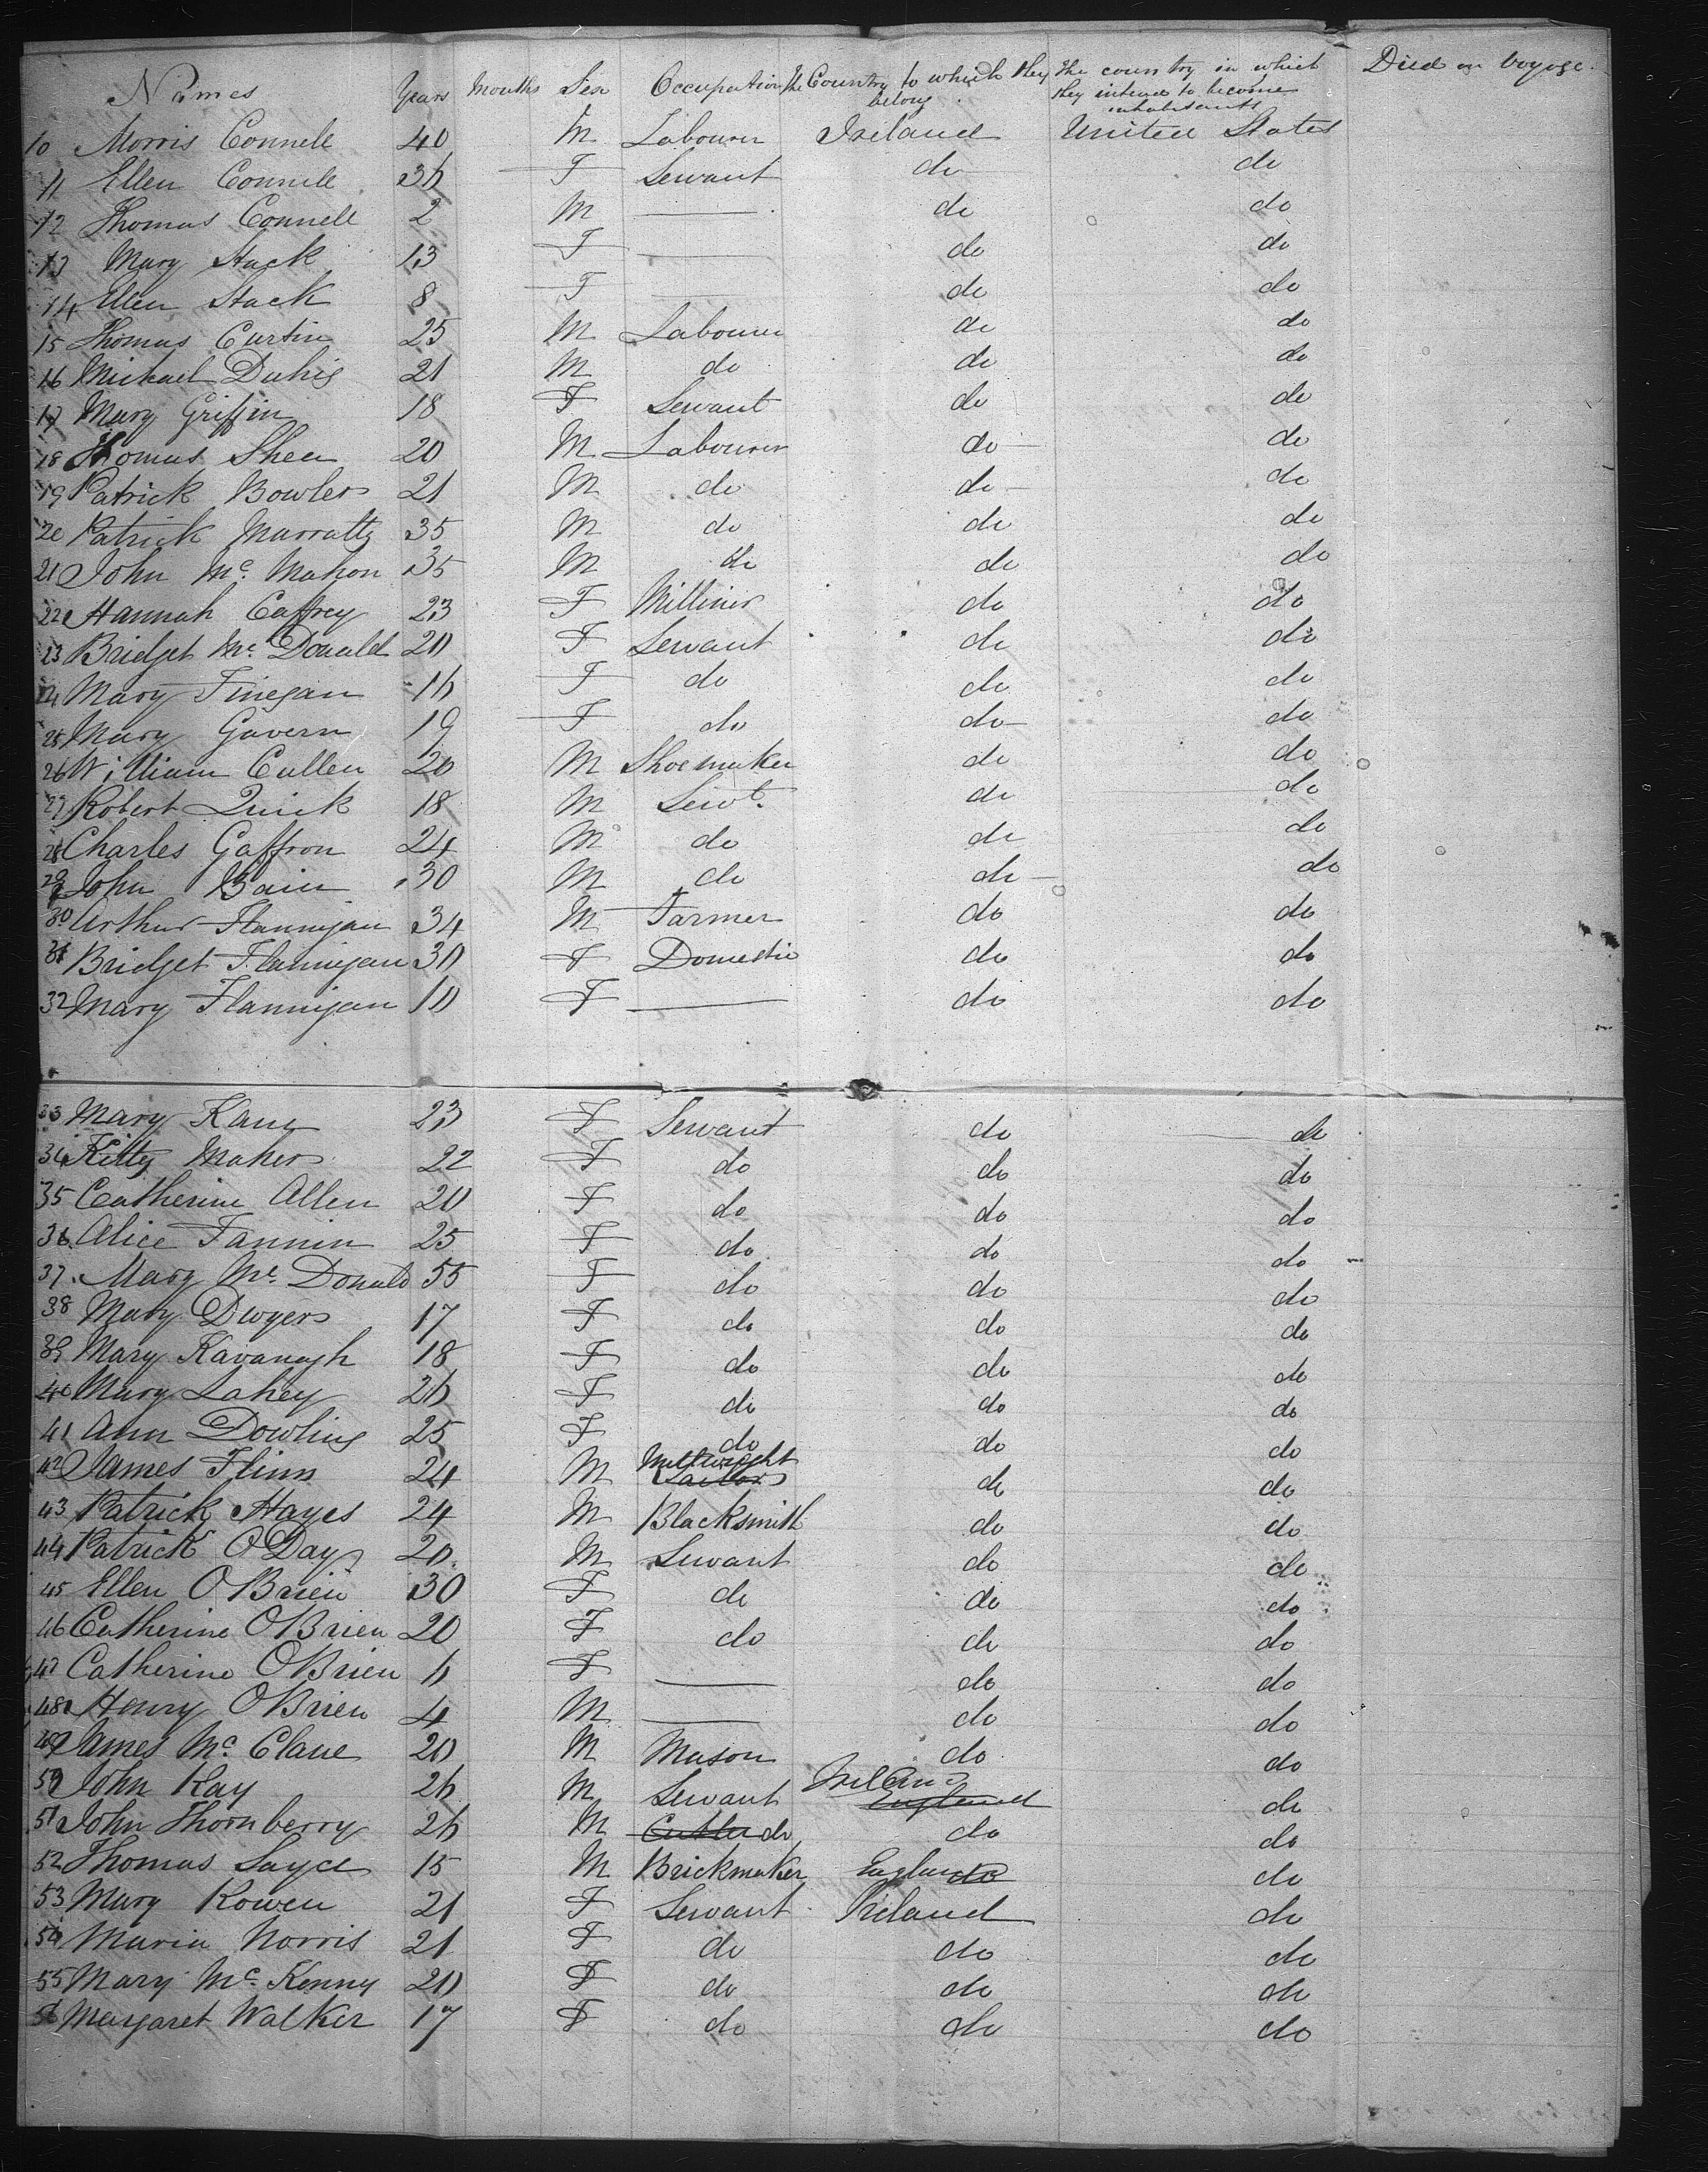 Names Years Months Sex Occupation The Country to which they belong The country in which they intend to become inhabitants Died on voyage.
10 Morris Connell 40 M Labourer Ireland United States
11 Ellen Connell 36 F Servant do do
12 Thomas Connell 2 M —— do do
13 Mary Stack 13 F —— do do
14 Ellen Stack 8 F —— do do
15 Thomas Curtin 25 M Labourer do do
16 Michael Duhig 21 M do do do
17 Mary Griffin 18 F Servant do do
18 Thomas Shea 20 M Labourer do do
19 Patrick Bowler 21 M do do do
20 Patrick Marratty 35 M do do do
21 John Mc. Mahon 35 M do do do
22 Hannah Caffrey 23 F Milliner do do
23 Bridget Mc. Donald 20 F Servant do do
24 Mary Finegan 16 F do do do
25 Mary Gavern 19 F do do do
26 William Cullen 20 M Shoemaker do do
27 Robert Quirk 18 M Servt. do do
28 Charles Gaffron 24 M do do do
29 John Bain 30 M do do do
30 Arthur Flannigan 34 M Farmer do do
31 Bridget Flannigan 30 F Domestic do do
32 Mary Flannigan 10 F —— do do
33 Mary Kane 23 F Servant do do
34 Kitty Maher 22 F do do do
35 Catherine Allen 20 F do do do
36 Alice Fannin 25 F do do do
37. Mary Mc. Donald 55 F do do do
38 Mary Dwyer 17 F do do do
39 Mary Kavanagh 18 F do do do
40 Mary Lahey 26 F do do do
41 Ann Dowling 25 F do do do
42 James Flinn 24 M Millwright Tailor do do
43 Patrick Hayes 24 M Blacksmith do do
44 Patrick O Day 20 M Servant do do
45 Ellen O Brien 30 F do do do
46 Catherine O Brien 20 F do do do
47 Catherine O Brien 6 F —— do do
48 Henry O Brien 4 M —— do do
49 James Mc. Clane 20 M Mason do do
50 John Kay 26 M Servant Ireland England do
51 John Thornberry 26 M Cutler do do do
52 Thomas Sayce 15 M Brickmaker England do do
53 Mary Rowen 21 F Servant Ireland do
54 Maria Norris 21 F do do do
55 Mary Mc. Kenny 20 F do do do
56 Margaret Walker 17 F do do do